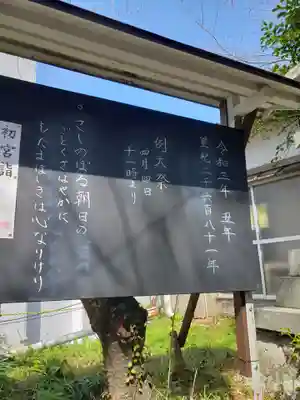 令和三年 丑年
皇紀二千六百八十一年
例大祭
四月四日
十一時より
。さしのぼる朝日の
ごとくさはやかに
もたまほしきは心なりけり
初宮詣